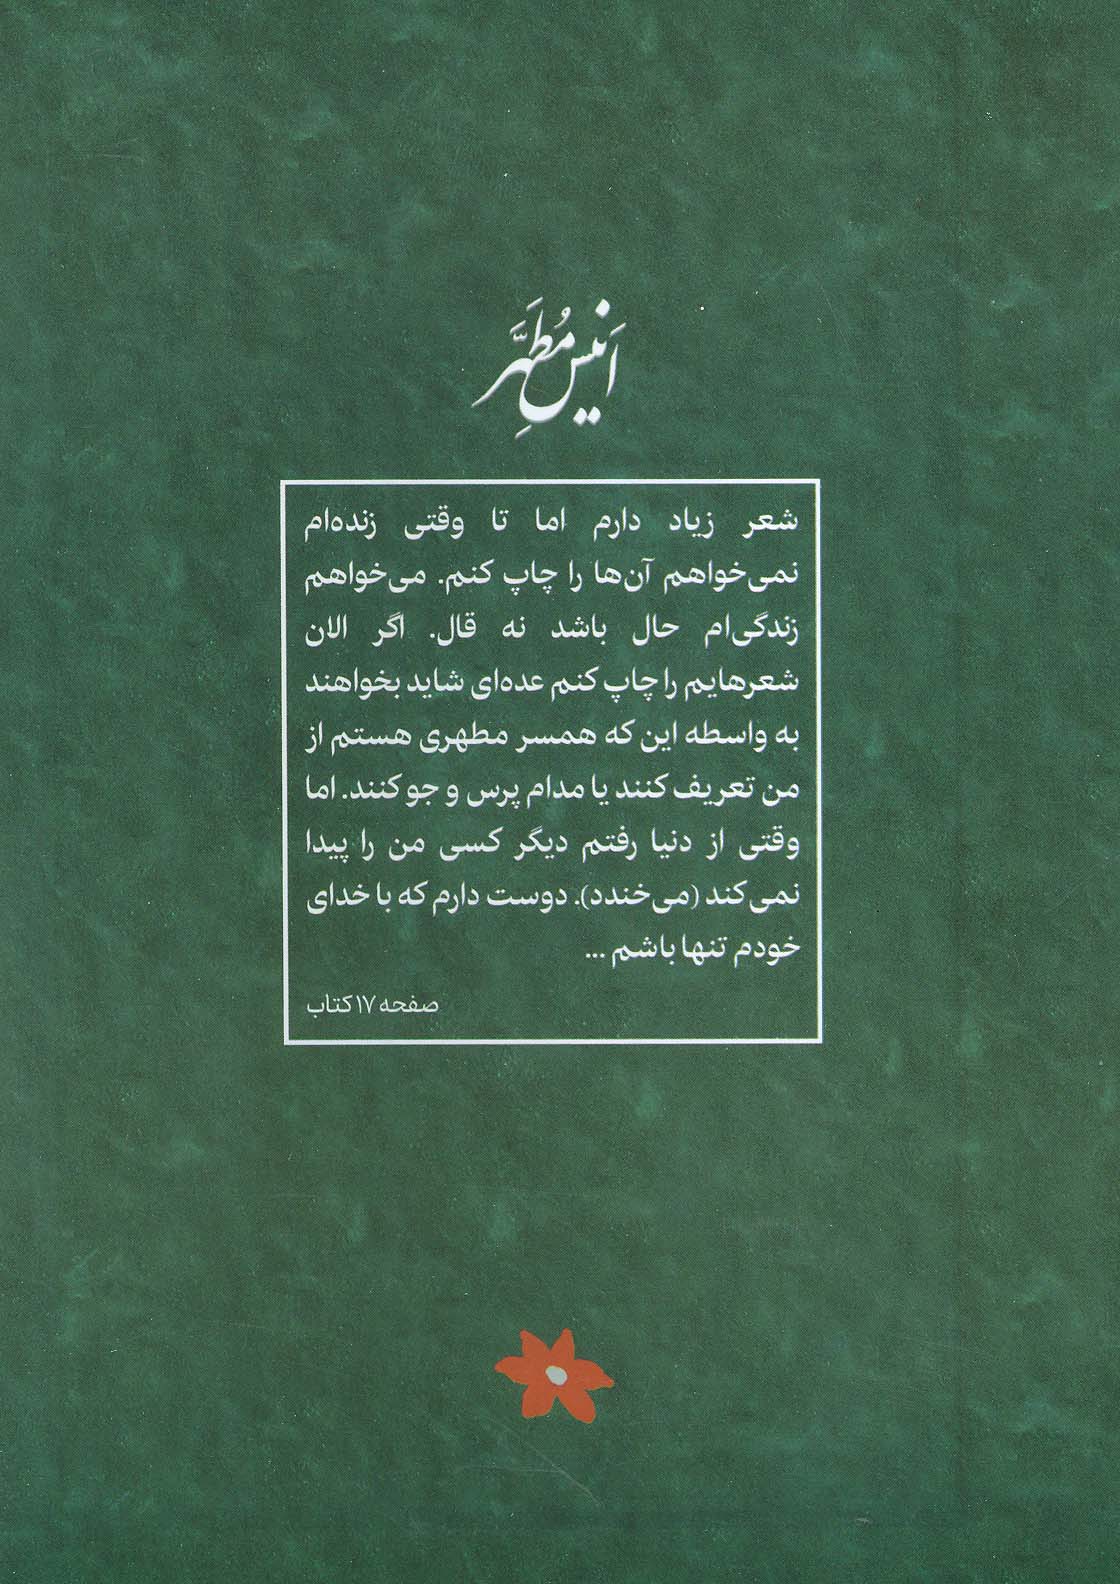 اَنیسِ مُطَهَّر
شعر زیاد دارم اما تا وقتی زنده‌ام
نمی‌خواهم آن‌ها را چاپ کنم. می‌خواهم
زندگی‌ام حال باشد نه قال. اگر الان
شعرهایم را چاپ کنم عده‌ای شاید بخواهند
به واسطه این که همسر مطهری هستم از
من تعریف کنند یا مدام پرس و جو کنند. اما
وقتی از دنیا رفتم دیگر کسی من را پیدا
نمی‌کند (می‌خندد). دوست دارم که با خدای
خودم تنها باشم ...
صفحه ۱۷ کتاب